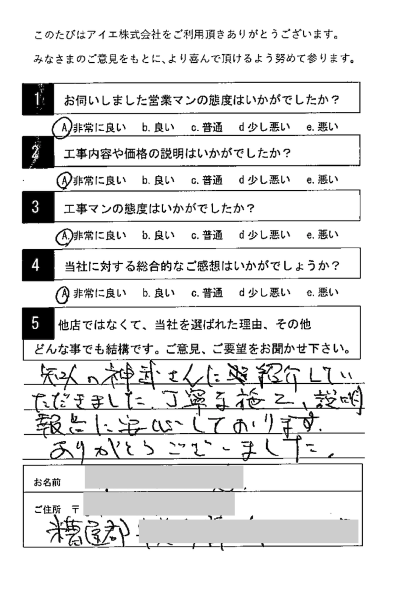 このたびはアイエ株式会社をご利用頂きありがとうございます。
みなさまのご意見をもとに、より喜んで頂けるよう努めて参ります。
1 お伺いしました営業マンの態度はいかがでしたか？
A.非常に良い b.良い c.普通 d少し悪い e.悪い
2 工事内容や価格の説明はいかがでしたか？
A.非常に良い b.良い c.普通 d少し悪い e.悪い
3 工事マンの態度はいかがでしたか？
A.非常に良い b.良い c.普通 d少し悪い e.悪い
4 当社に対する総合的なご感想はいかがでしょうか？
A.非常に良い b.良い c.普通 d少し悪い e.悪い
5 他店ではなくて、当社を選ばれた理由、その他
どんな事でも結構です。ご意見、ご要望をお聞かせ下さい。
知人の神武さんに紹介してい
ただきました。丁寧な施工、説明
報告に安心しております。
ありがとうございました。
お名前
ご住所 〒
糟屋郡